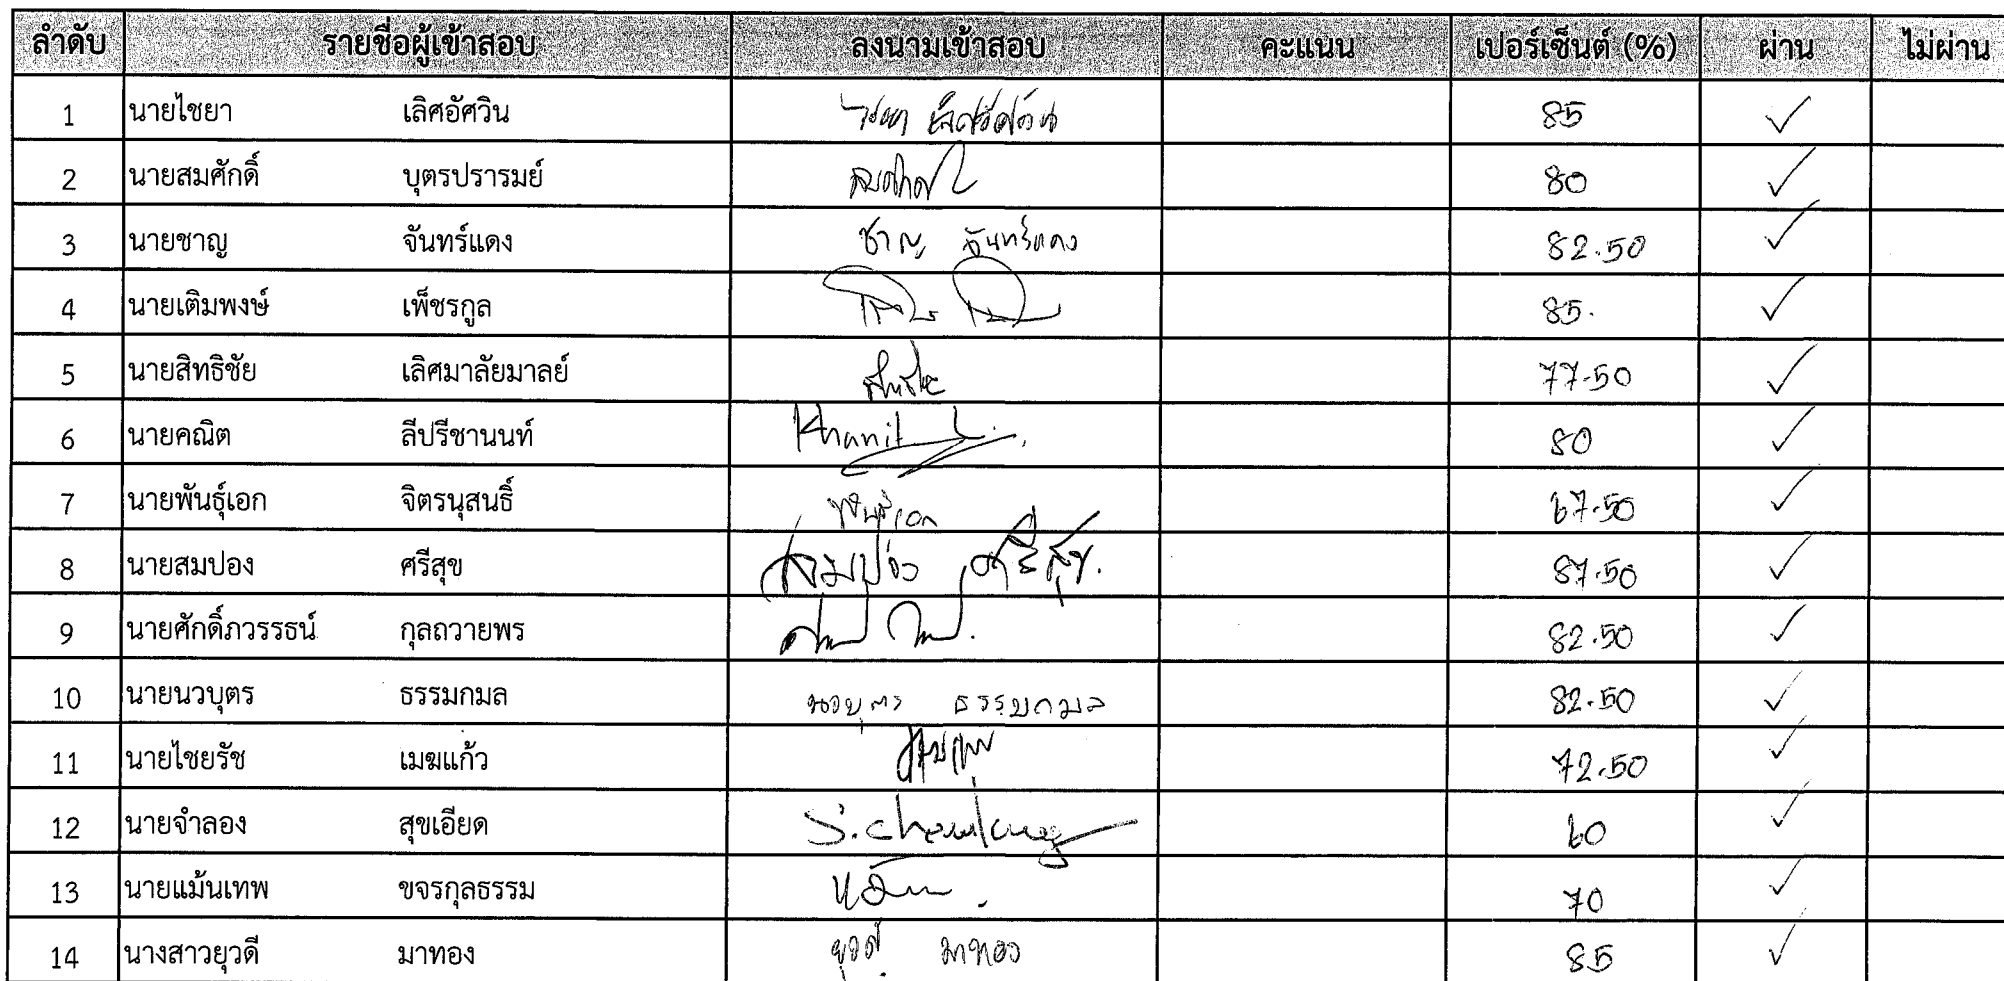 ลำดับ รายชื่อผู้เข้าสอบ ลงนามเข้าสอบ คะแนน เปอร์เซ็นต์ (%) ผ่าน ไม่ผ่าน
1 นายไชยา เลิศอัศวิน ไชยา เลิศอัศวิน 85 ✓
2 นายสมศักดิ์ บุตรปรารมย์ 80 ✓
3 นายชาญ จันทร์แดง ชาญ จันทร์แดง 82.50 ✓
4 นายเติมพงษ์ เพ็ชรกูล 85. ✓
5 นายสิทธิชัย เลิศมาลัยมาลย์ 77.50 ✓
6 นายคณิต ลีปรีชานนท์ Khanit L. 80 ✓
7 นายพันธุ์เอก จิตรนุสนธิ์ พันธุ์เอก 67.50 ✓
8 นายสมปอง ศรีสุข สมปอง ศรีสุข. 87.50 ✓
9 นายศักดิ์ภวรรธน์ กุลถวายพร 82.50 ✓
10 นายนวบุตร ธรรมกมล นวบุตร ธรรมกมล 82.50 ✓
11 นายไชยรัช เมฆแก้ว 72.50 ✓
12 นายจำลอง สุขเอียด 60 ✓
13 นายแม้นเทพ ขจรกุลธรรม 70 ✓
14 นางสาวยุวดี มาทอง ยุวดี มาทอง 85 ✓